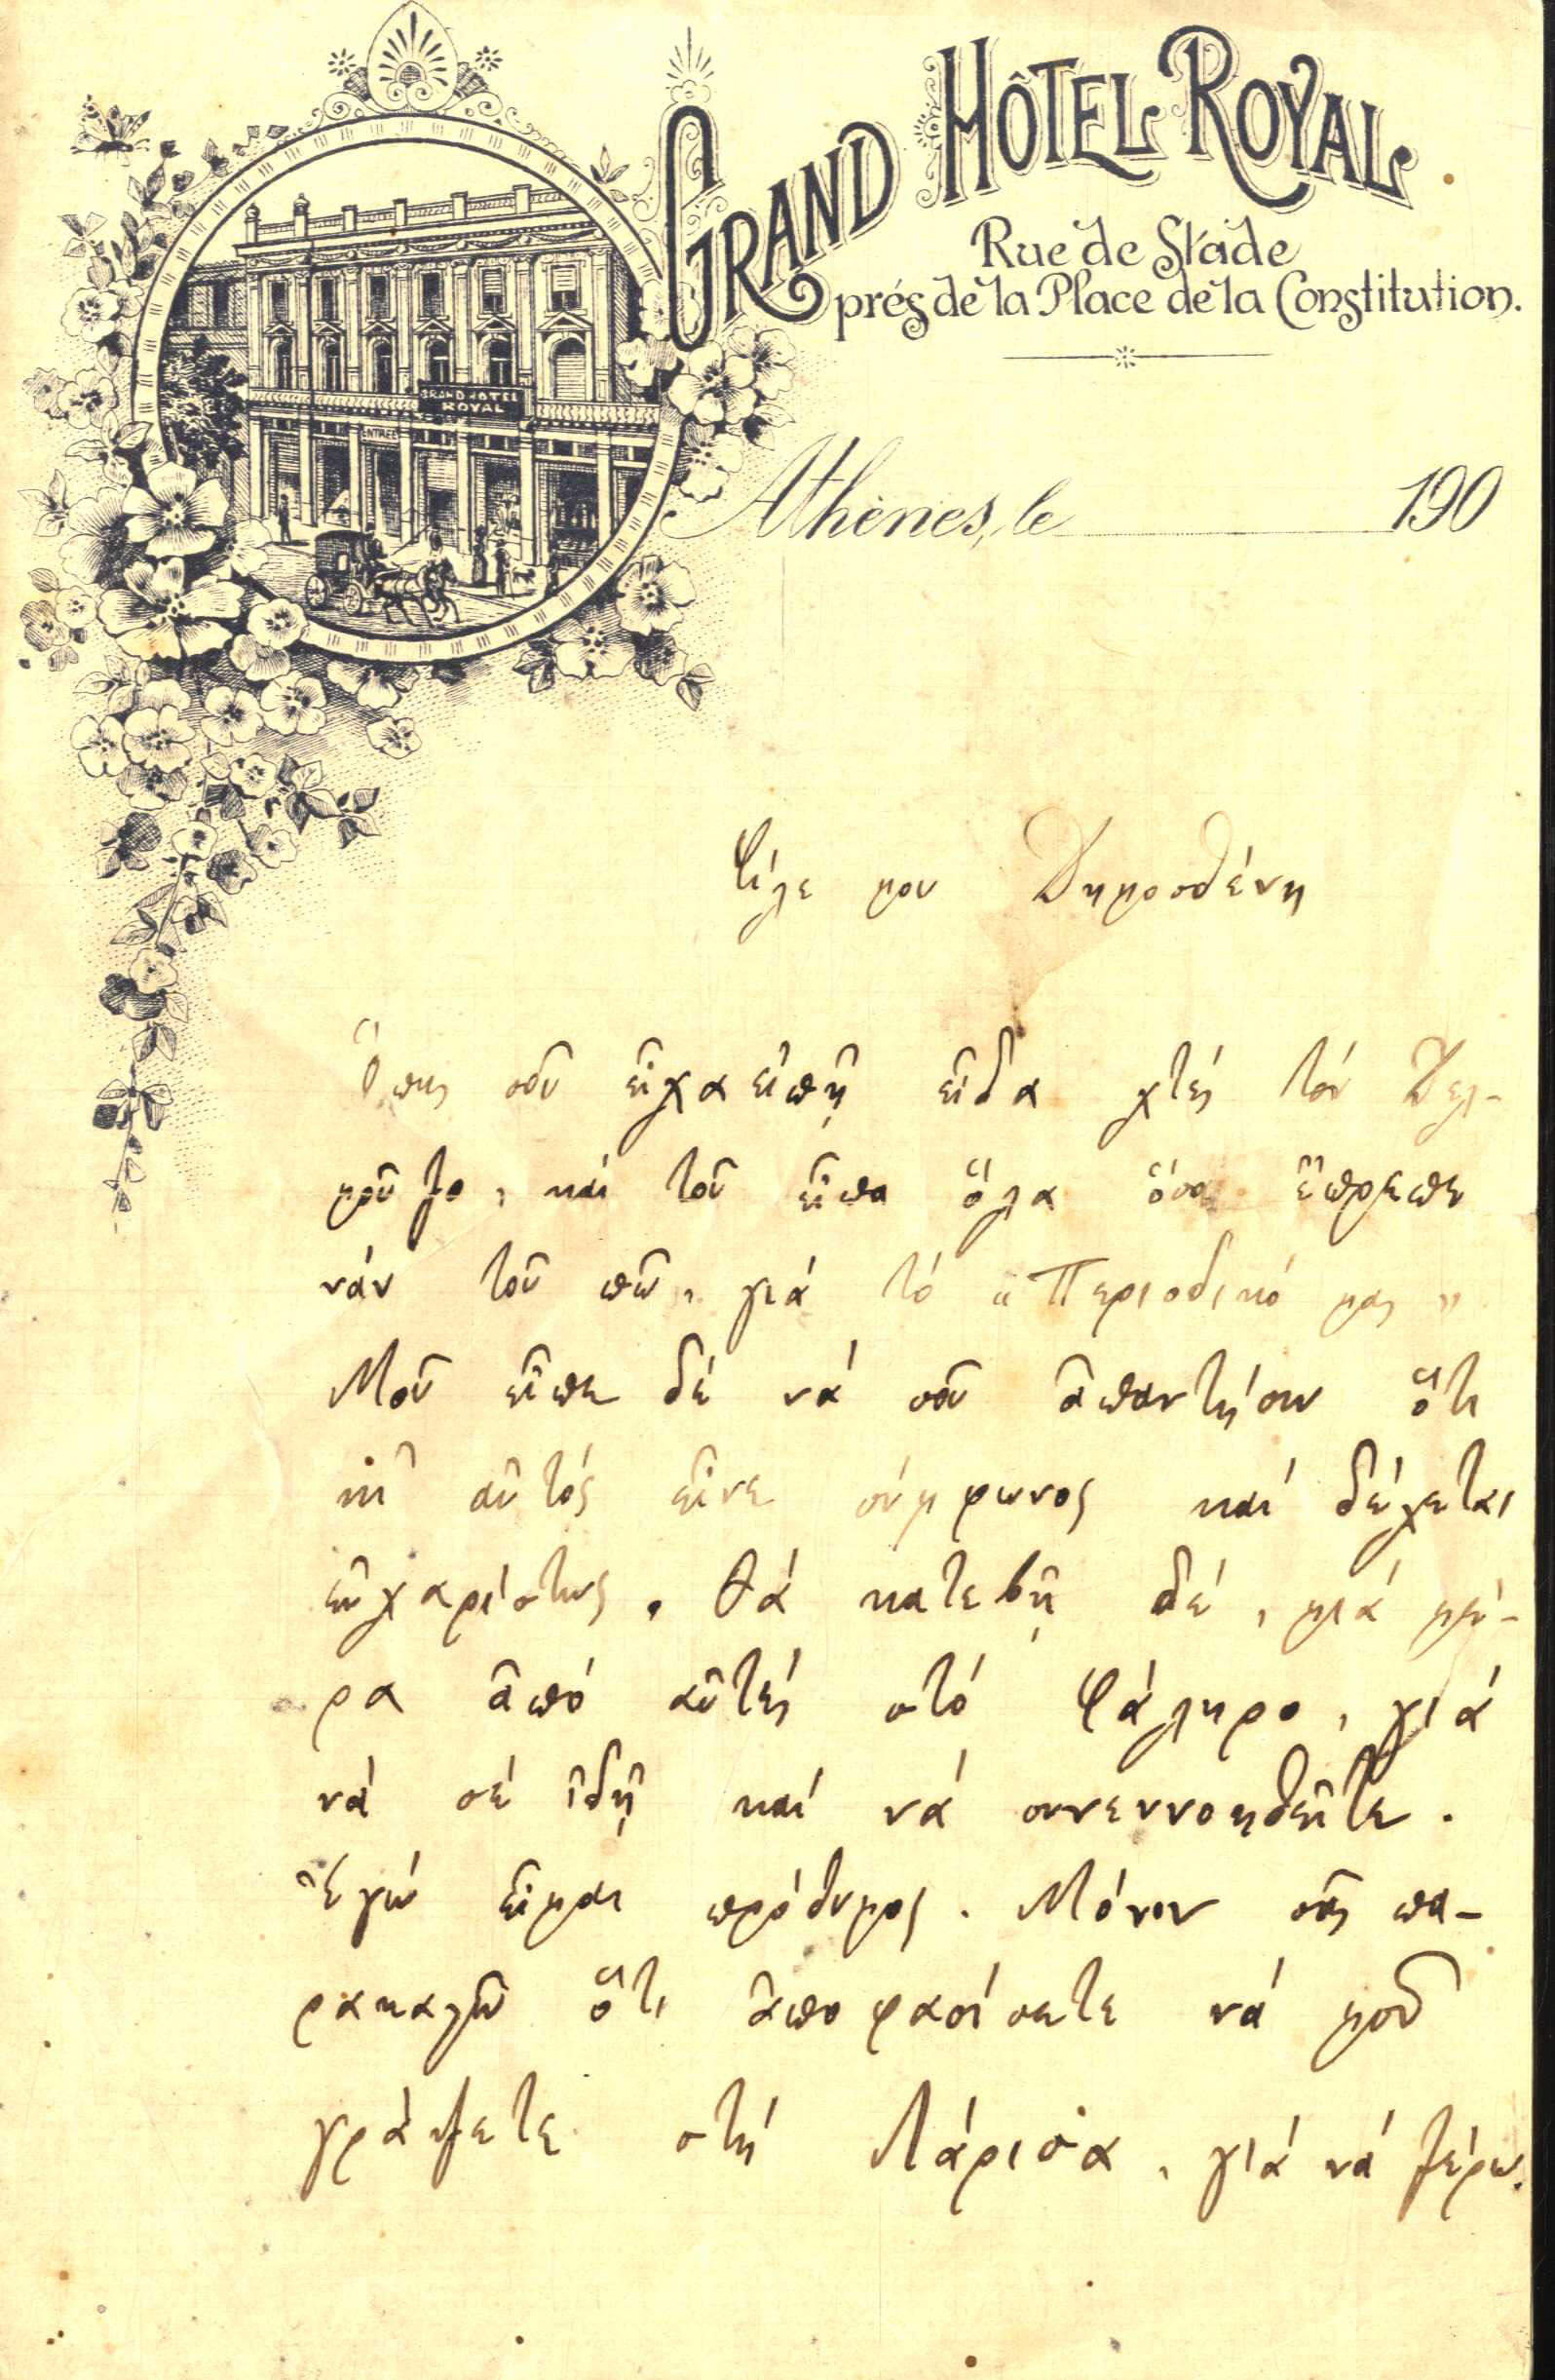 GRAND HÔTEL ROYAL
Rue de Stade
prés de la Place de la Constitution.
GRAND HOTEL
ROYAL
ENTREE
Athènes, le 190
Φίλε μου Δημοσθένη
Ὅπως σοῦ εἶχα εἰπῆ εἶδα χτές τόν Δελ-
μοῦζο, καί τοῦ εἶπα ὅλα ὅσα ἔπρεπε
νάν τοῦ πῶ, γιά τό «Περιοδικό μας»
Μοῦ εἶπε δέ νά σοῦ ἀπαντήσω ὅτι
κι' αὐτός εἶνε σύμφωνος καί δέχεται
εὐχαρίστως. Θά κατεβῆ δέ, μιά μέ-
ρα ἀπό αὐτές στό Φάληρο, γιά
νά σέ ἰδῆ καί νά συνεννοηθεῖτε.
Ἐγώ εἶμαι πρόθυμος. Μόνον σᾶς πα-
ρακαλῶ ὅτι ἀποφασίσετε νά μοῦ
γράψετε στή Λάρισα, γιά νά ξέρω.